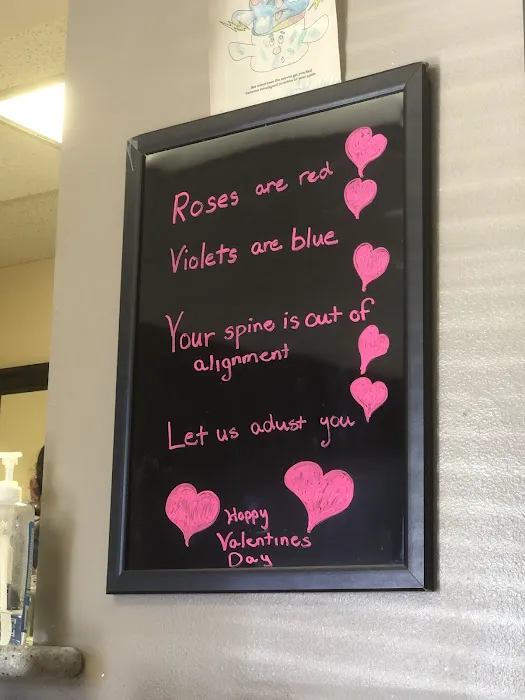 Roses are red
Violets are blue
Your spine is out of
alignment
Let us adust you
Happy
Valentines
Day